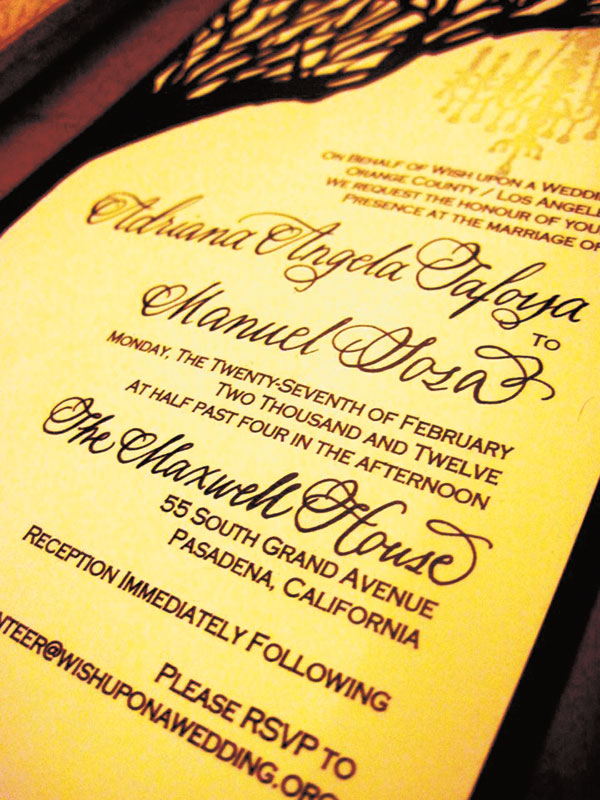 On Behalf of Wish Upon a Weddin
Orange County / Los Angele
We request the honour of you
Presence at the marriage of
Adriana Angela Tafoya
to
Manuel Sosa
Monday, the Twenty-Seventh of February
Two Thousand and Twelve
at half past four in the afternoon
The Maxwell House
55 South Grand Avenue
Pasadena, California
Reception Immediately Following
Please RSVP to
nteer@wishuponawedding.org